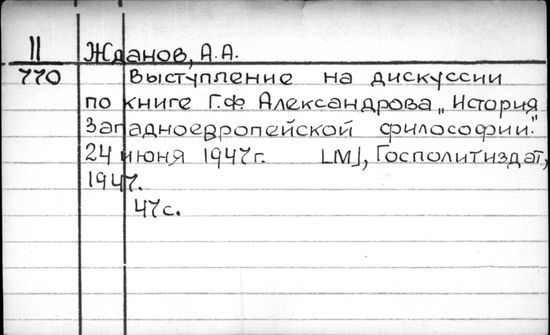 II Жданов, А.А.
770 Выступление на дискуссии
по книге Г.Ф. Александрова „История
западноевропейской философии."
24 июня 1947г. [М], Госполитиздат,
1947.
47с.